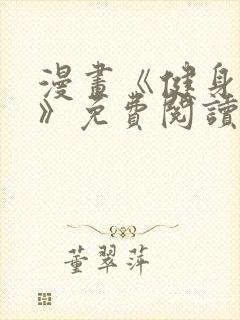 漫畫《健身
》免費閱讀
董翠萍